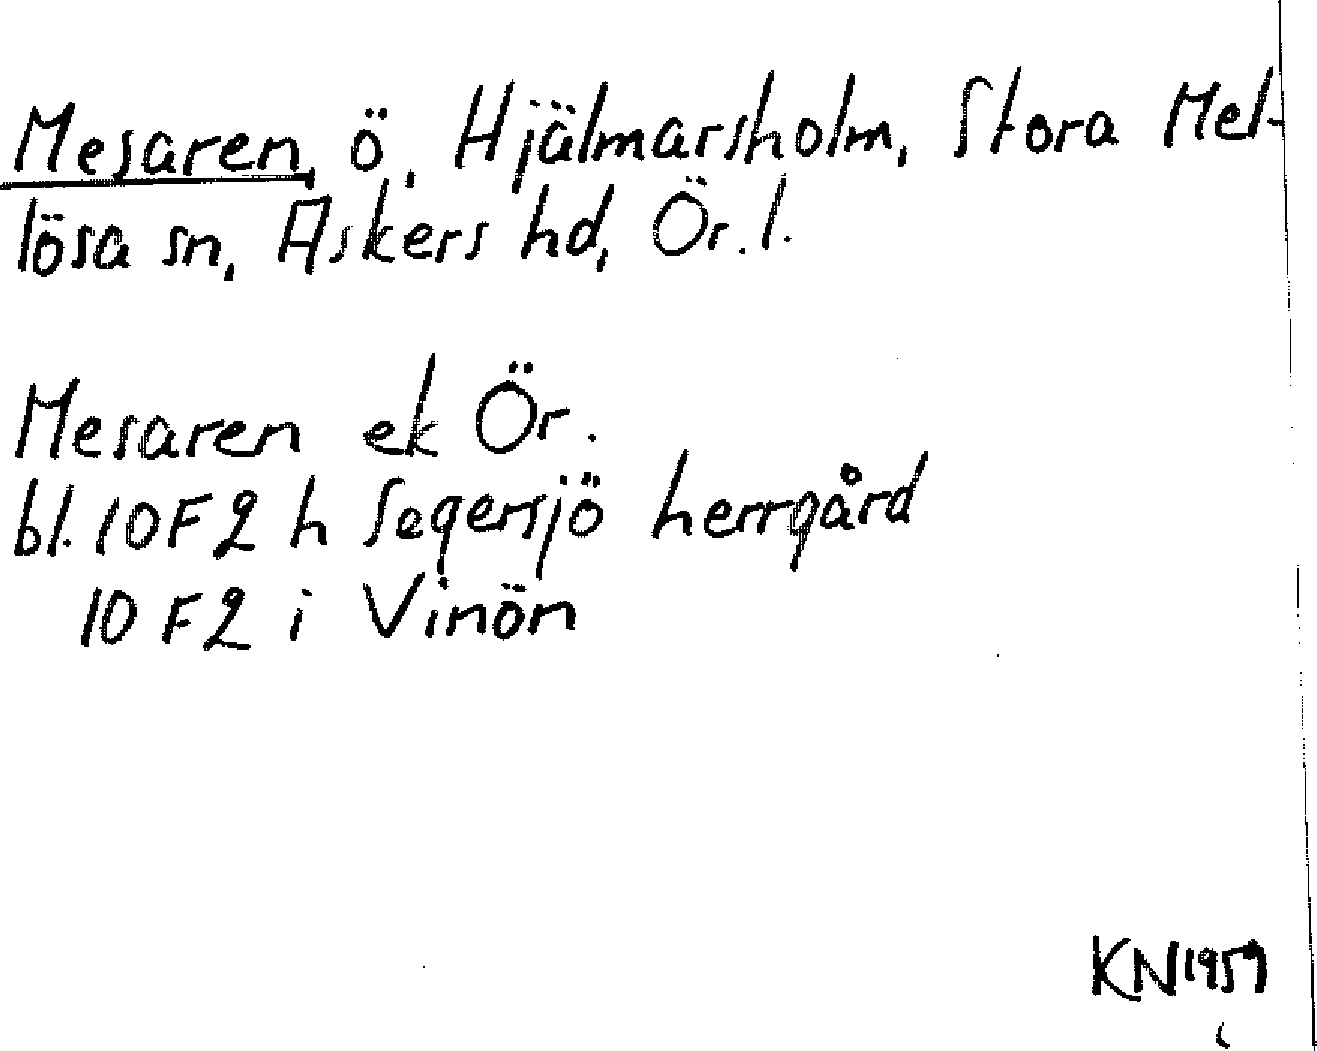 Mesaren, ö, Hjälmarsholm, Stora Mel-
lösa sn, Askers hd, Ör. l.
Mesaren ek Ör.
bl. 10F2 h Segersjö herrgård
10 F2 i Vinön
KN1959